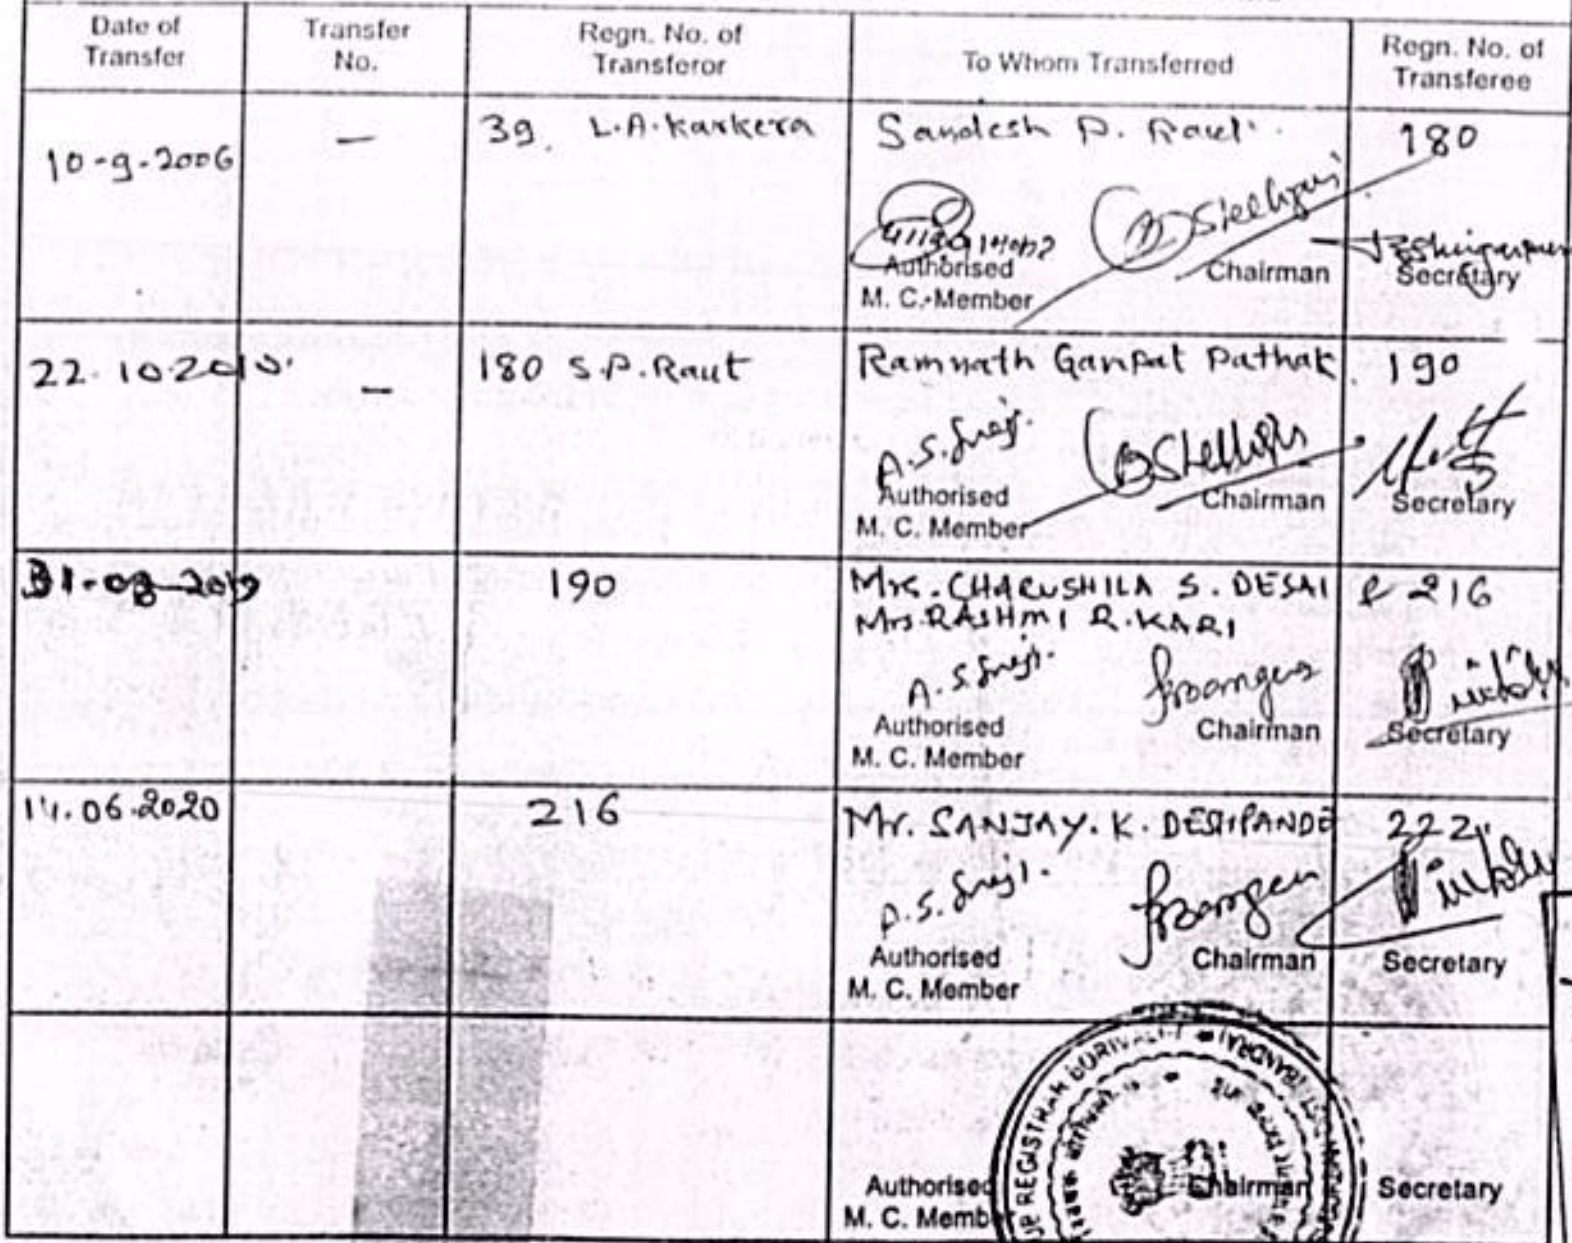 Date of Transfer
Transfer No.
Regn. No. of Transferor
To Whom Transferred
Regn. No. of Transferee
10-9-2006
—
39. L.A. Karkera
Sandesh P. Raut.
180
Authorised M. C. Member
Chairman
Secretary
22.10.2010.
–
180 S.P. Raut
Ramnath Ganpat Pathak.
190
A.S.
Authorised M. C. Member
Chairman
Secretary
31-08-2019
190
Mrs. CHARUSHILA S. DESAI &
Mrs. RASHMI R. KARI
216
A.S.
Authorised M. C. Member
Chairman
Secretary
14.06.2020
216
Mr. SANJAY. K. DESHPANDE
222
A.S.
Authorised M. C. Member
Chairman
Secretary
REGISTRAR BORIVALI
Authorised M. C. Memb
Chairman
Secretary